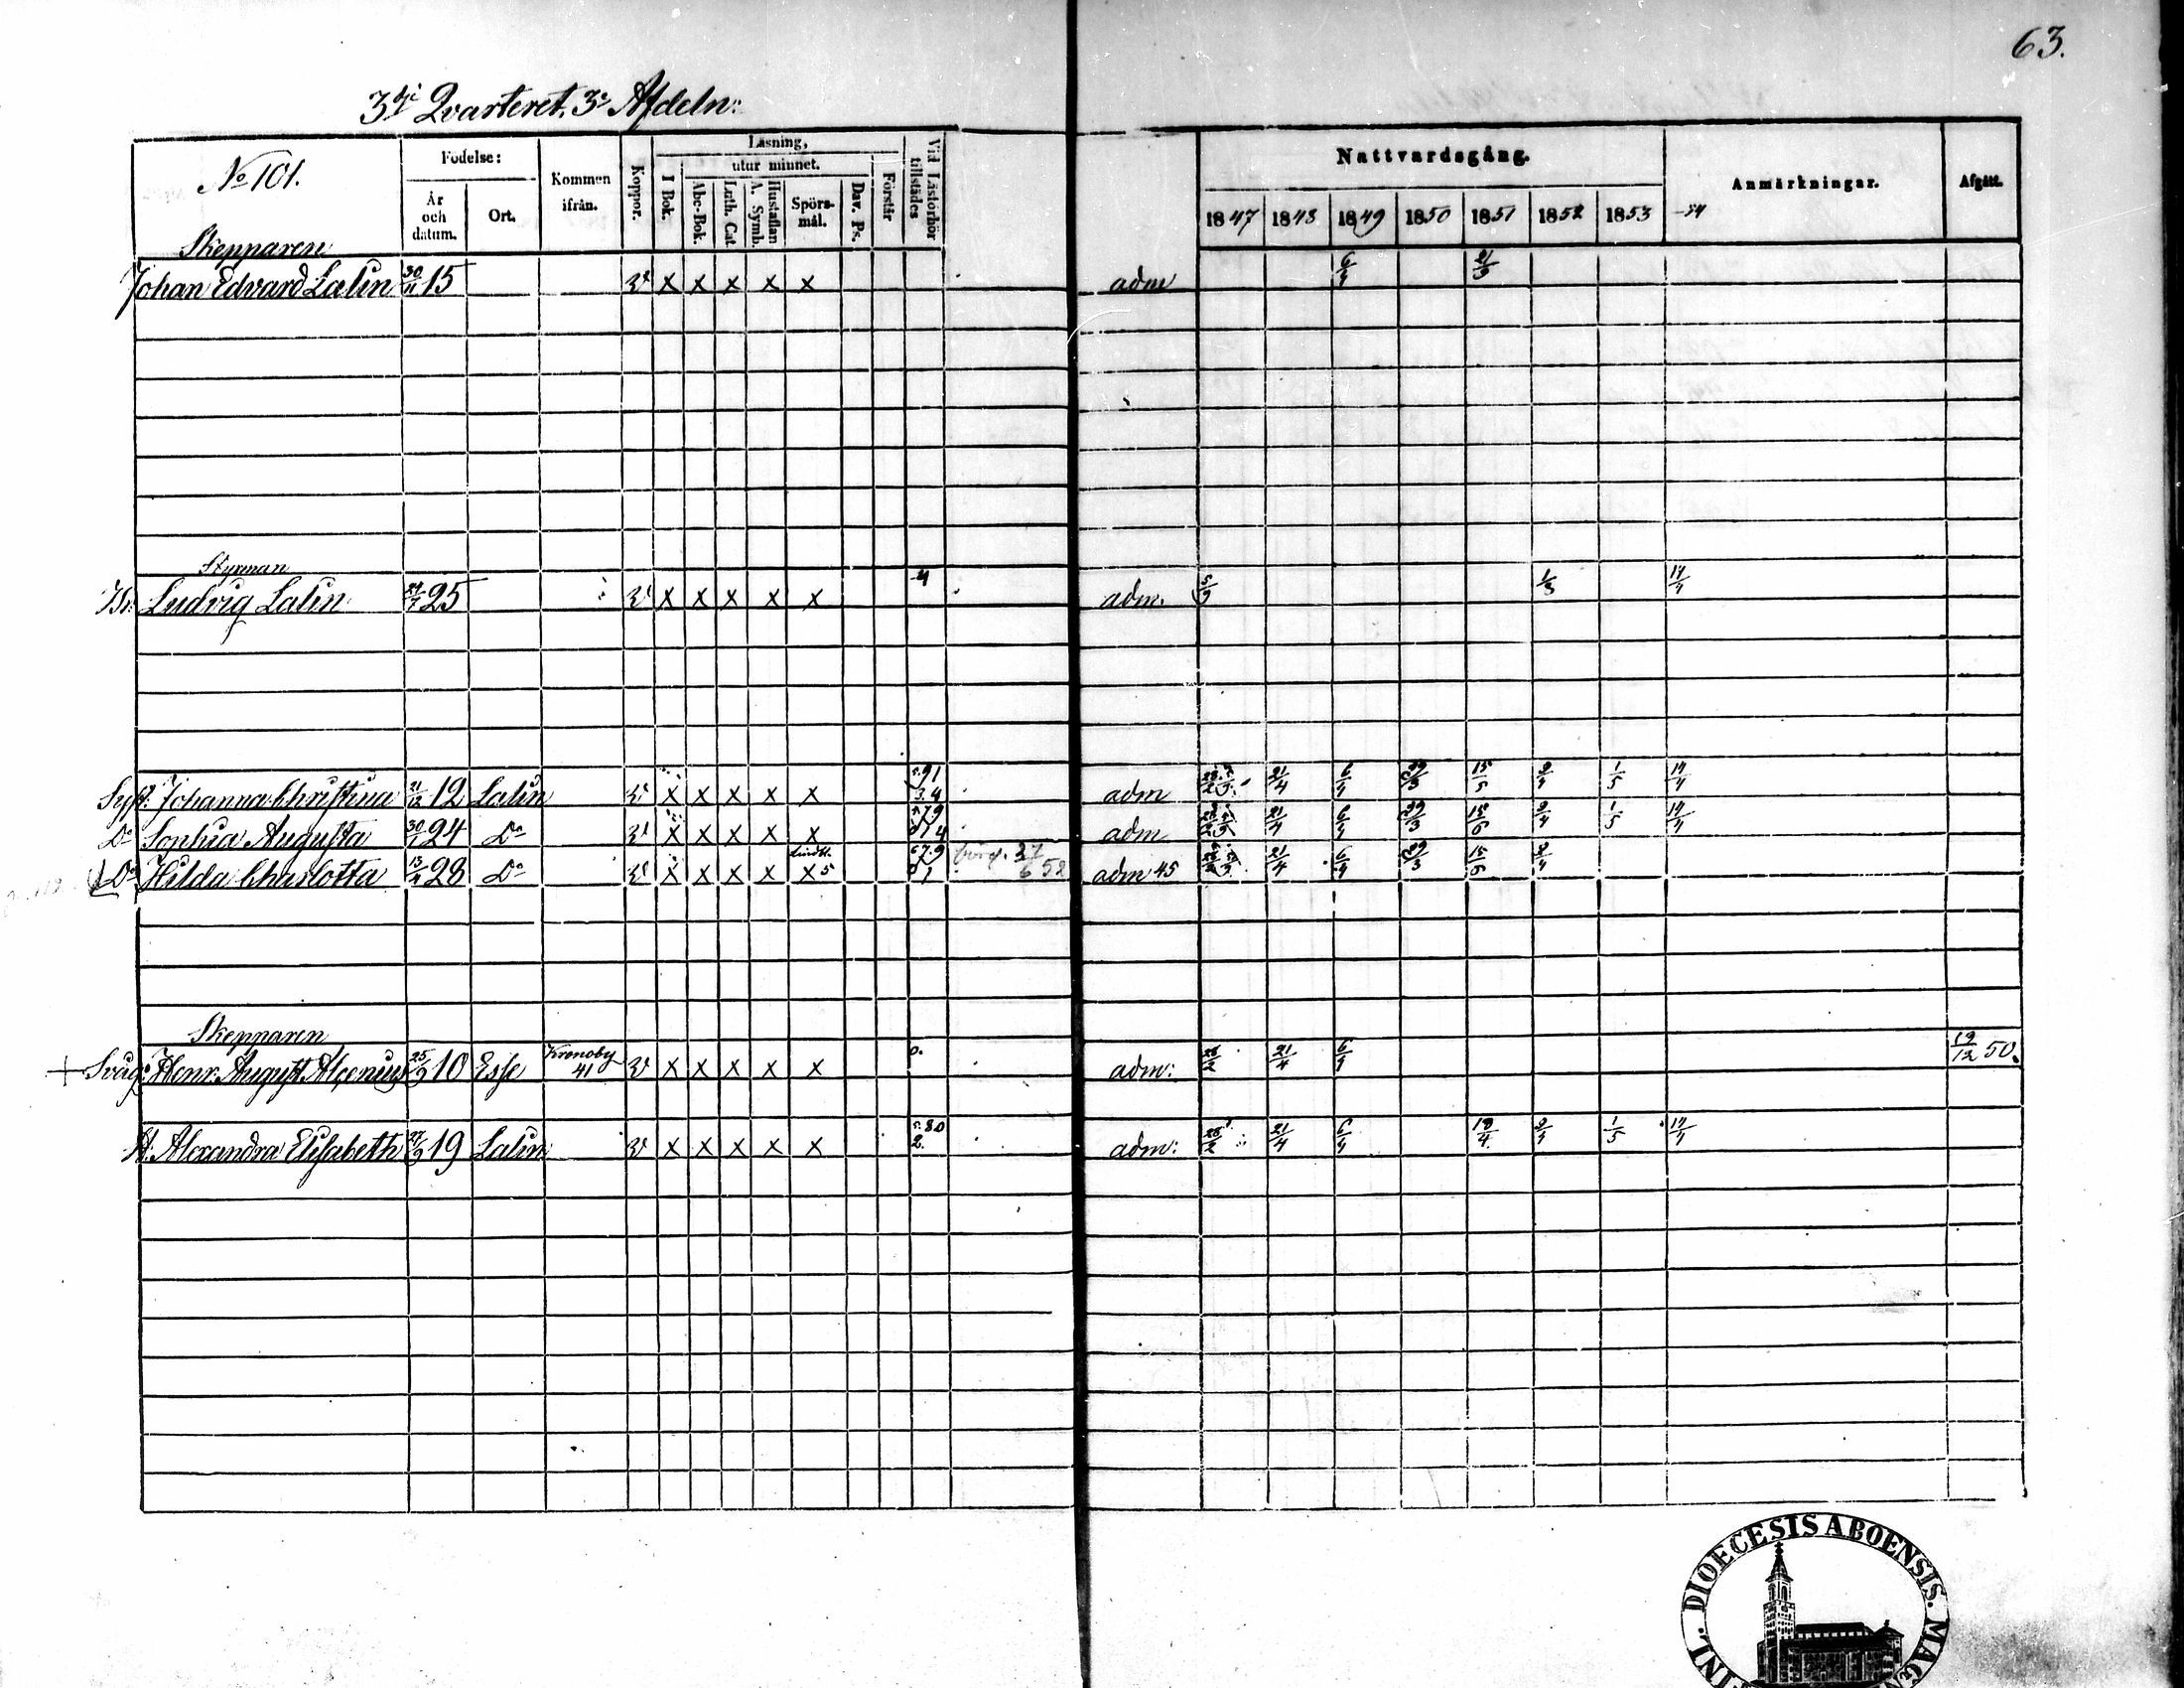 63.
3dje Qvarteret. 3e Afdeln:
No 101.
Födelse:
År och datum.
Ort.
Kommen ifrån.
Koppor.
Läsning,
utur minnet.
I Bok.
Abc-Bok.
Luth. Cat.
A. Symb.
Hustaflan
Spörs-mål.
Dav. Ps.
Förstår
Vid Läsförhör tillstädes
Nattvardsgång.
1847 1848 1849 1850 1851 1852 1853 -54
Anmärkningar.
Afgått.
Skepparen
Johan Edvard Lalin 30/11 15 x x x x x adm 6/4 21/9
Styrman
Br: Ludvig Lalin 25 x x x x x 4 adm. 5/9 1/3 14/4
Syst: Johanna Christina 21/12 12 Lalin x x x x x adm 21/4 6/4 29/3 15/5 2/4 1/5 14/4
Do Sophia Augusta 24 Do x x x x x adm 21/4 6/4 29/3 15/6 2/4 1/5 14/4
Do Hilda Charlotta 28 Do x x x x x 5 adm 45 21/4 6/4 29/3 15/6 2/4
Skepparen
+ Svåg: Henr. August Alcenius 25/9 10 Esse Kronoby 41 x x x x x 0. adm: 28/2 21/4 6/4 19/12 50.
H. Alexandra Elisabeth 27/9 19 Lalin x x x x x adm: 28/2 21/4 6/4 19/4 2/4 1/5 14/4
FINL. DIOECESIS ABOENSIS. MAG